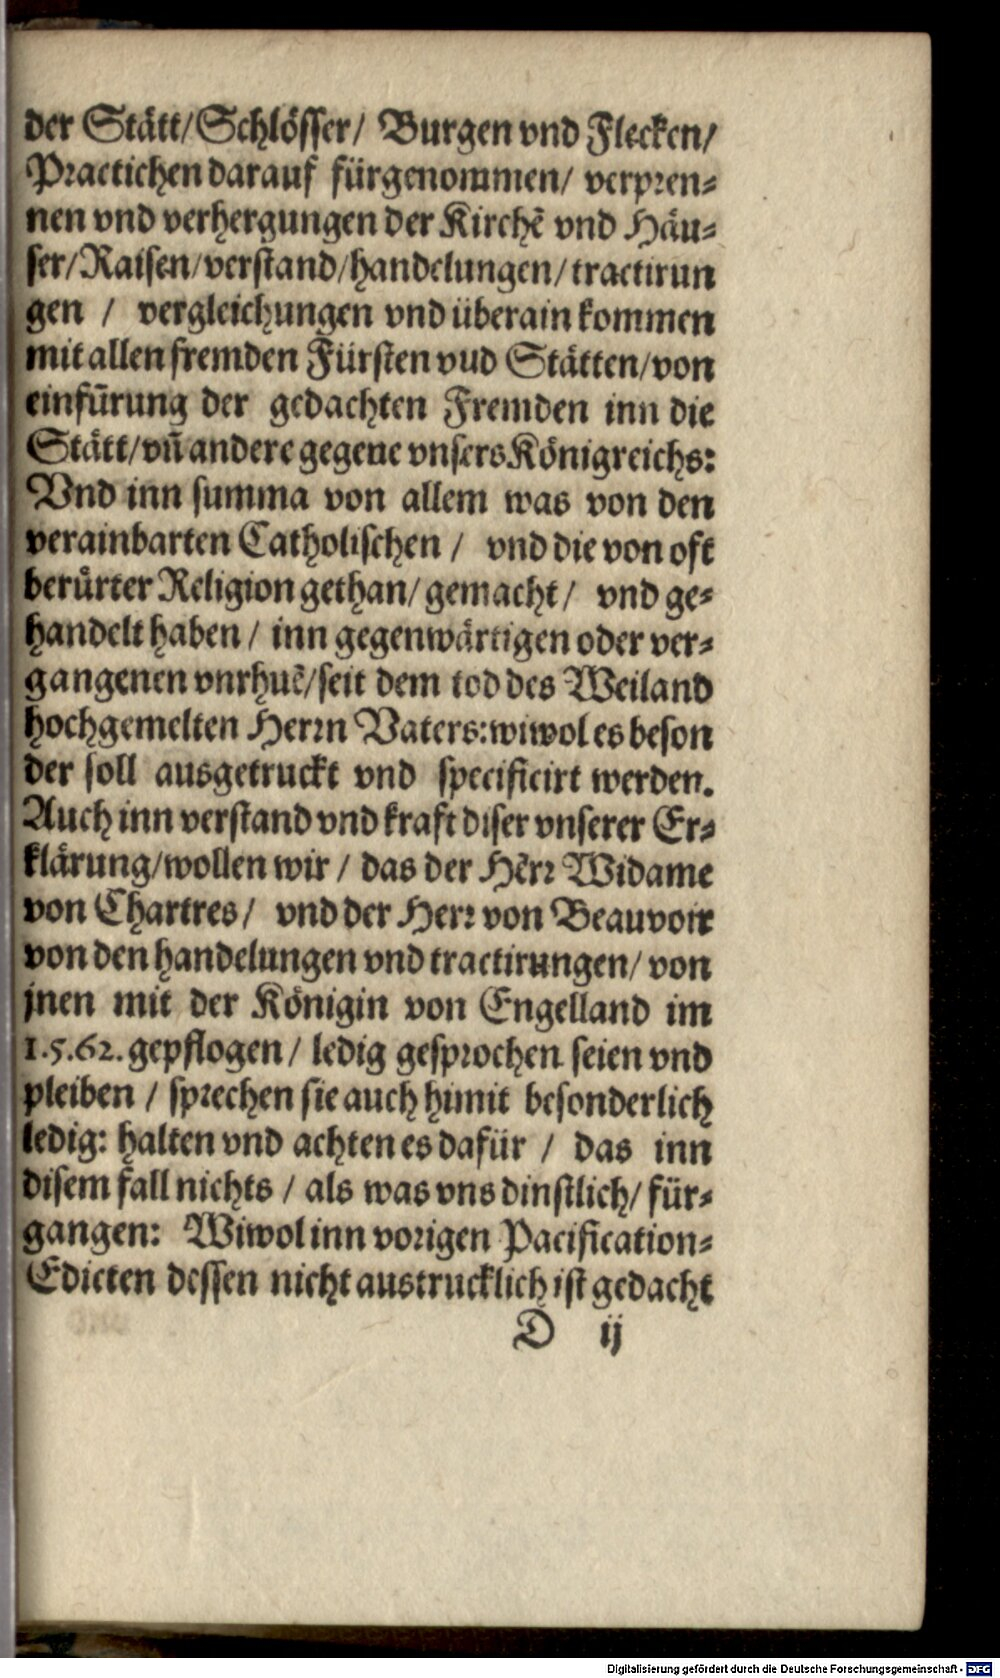 der Stätt/Schlösser/ Burgen vnd Flecken/
Practichen darauf fürgenommen/ verpren-
nen vnd verhergungen der Kirchē vnd Häu-
ser/Raisen/verstand/handelungen/tractirun
gen / vergleichungen vnd überain kommen
mit allen fremden Fürsten vud Stätten/von
einfürung der gedachten Fremden inn die
Stätt/vn̄ andere gegene vnsers Königreichs:
Vnd inn summa von allem was von den
verainbarten Catholischen / vnd die von oft
berürter Religion gethan/ gemacht/ vnd ge-
handelt haben / inn gegenwärtigen oder ver-
gangenen vnrhuē/seit dem tod des Weiland
hochgemelten Herrn Vaters:wiwol es beson
der soll ausgetruckt vnd specificirt werden.
Auch inn verstand vnd kraft diser vnserer Er-
klärung/wollen wir / das der Herr Widame
von Chartres/ vnd der Herr von Beauvoir
von den handelungen vnd tractirungen/ von
jnen mit der Königin von Engelland im
1.5.62. gepflogen / ledig gesprochen seien vnd
pleiben / sprechen sie auch himit besonderlich
ledig: halten vnd achten es dafür / das inn
disem fall nichts / als was vns dinstlich/ für-
gangen: Wiwol inn vorigen Pacification-
Edicten dessen nicht austrucklich ist gedacht
D ij
Digitalisierung gefördert durch die Deutsche Forschungsgemeinschaft - DFG